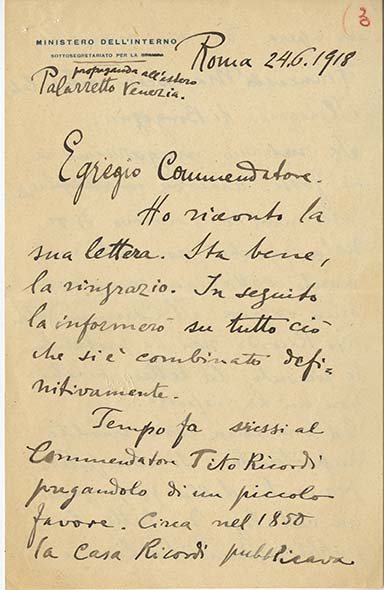 MINISTERO DELL'INTERNO
SOTTOSEGRETARIATO PER LA STAMPA
propaganda all'estero
Palazzetto Venezia.
Roma 24.6.1918
Egregio Commendatore.
Ho ricevuto la
sua lettera. Sta bene,
la ringrazio. In seguito
la informerò su tutto ciò
che si è combinato defi-
nitivamente.
Tempo fa scrissi al
Commendatore Tito Ricordi
pregandolo di un piccolo
favore. Circa nel 1850
la Casa Ricordi pubblicava